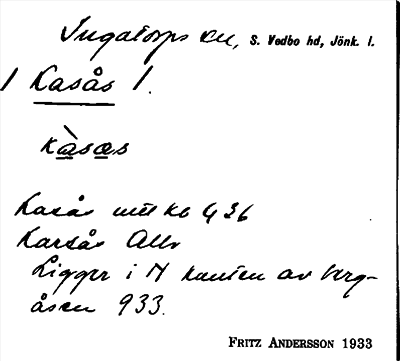 Ingatorps sn, S. Vedbo hd, Jönk. l.
/ Kasås /.
kàsas
Kasås
Karsås Allm
Ligger i N kanten av berg-
åsen 933.
FRITZ ANDERSSON 1933